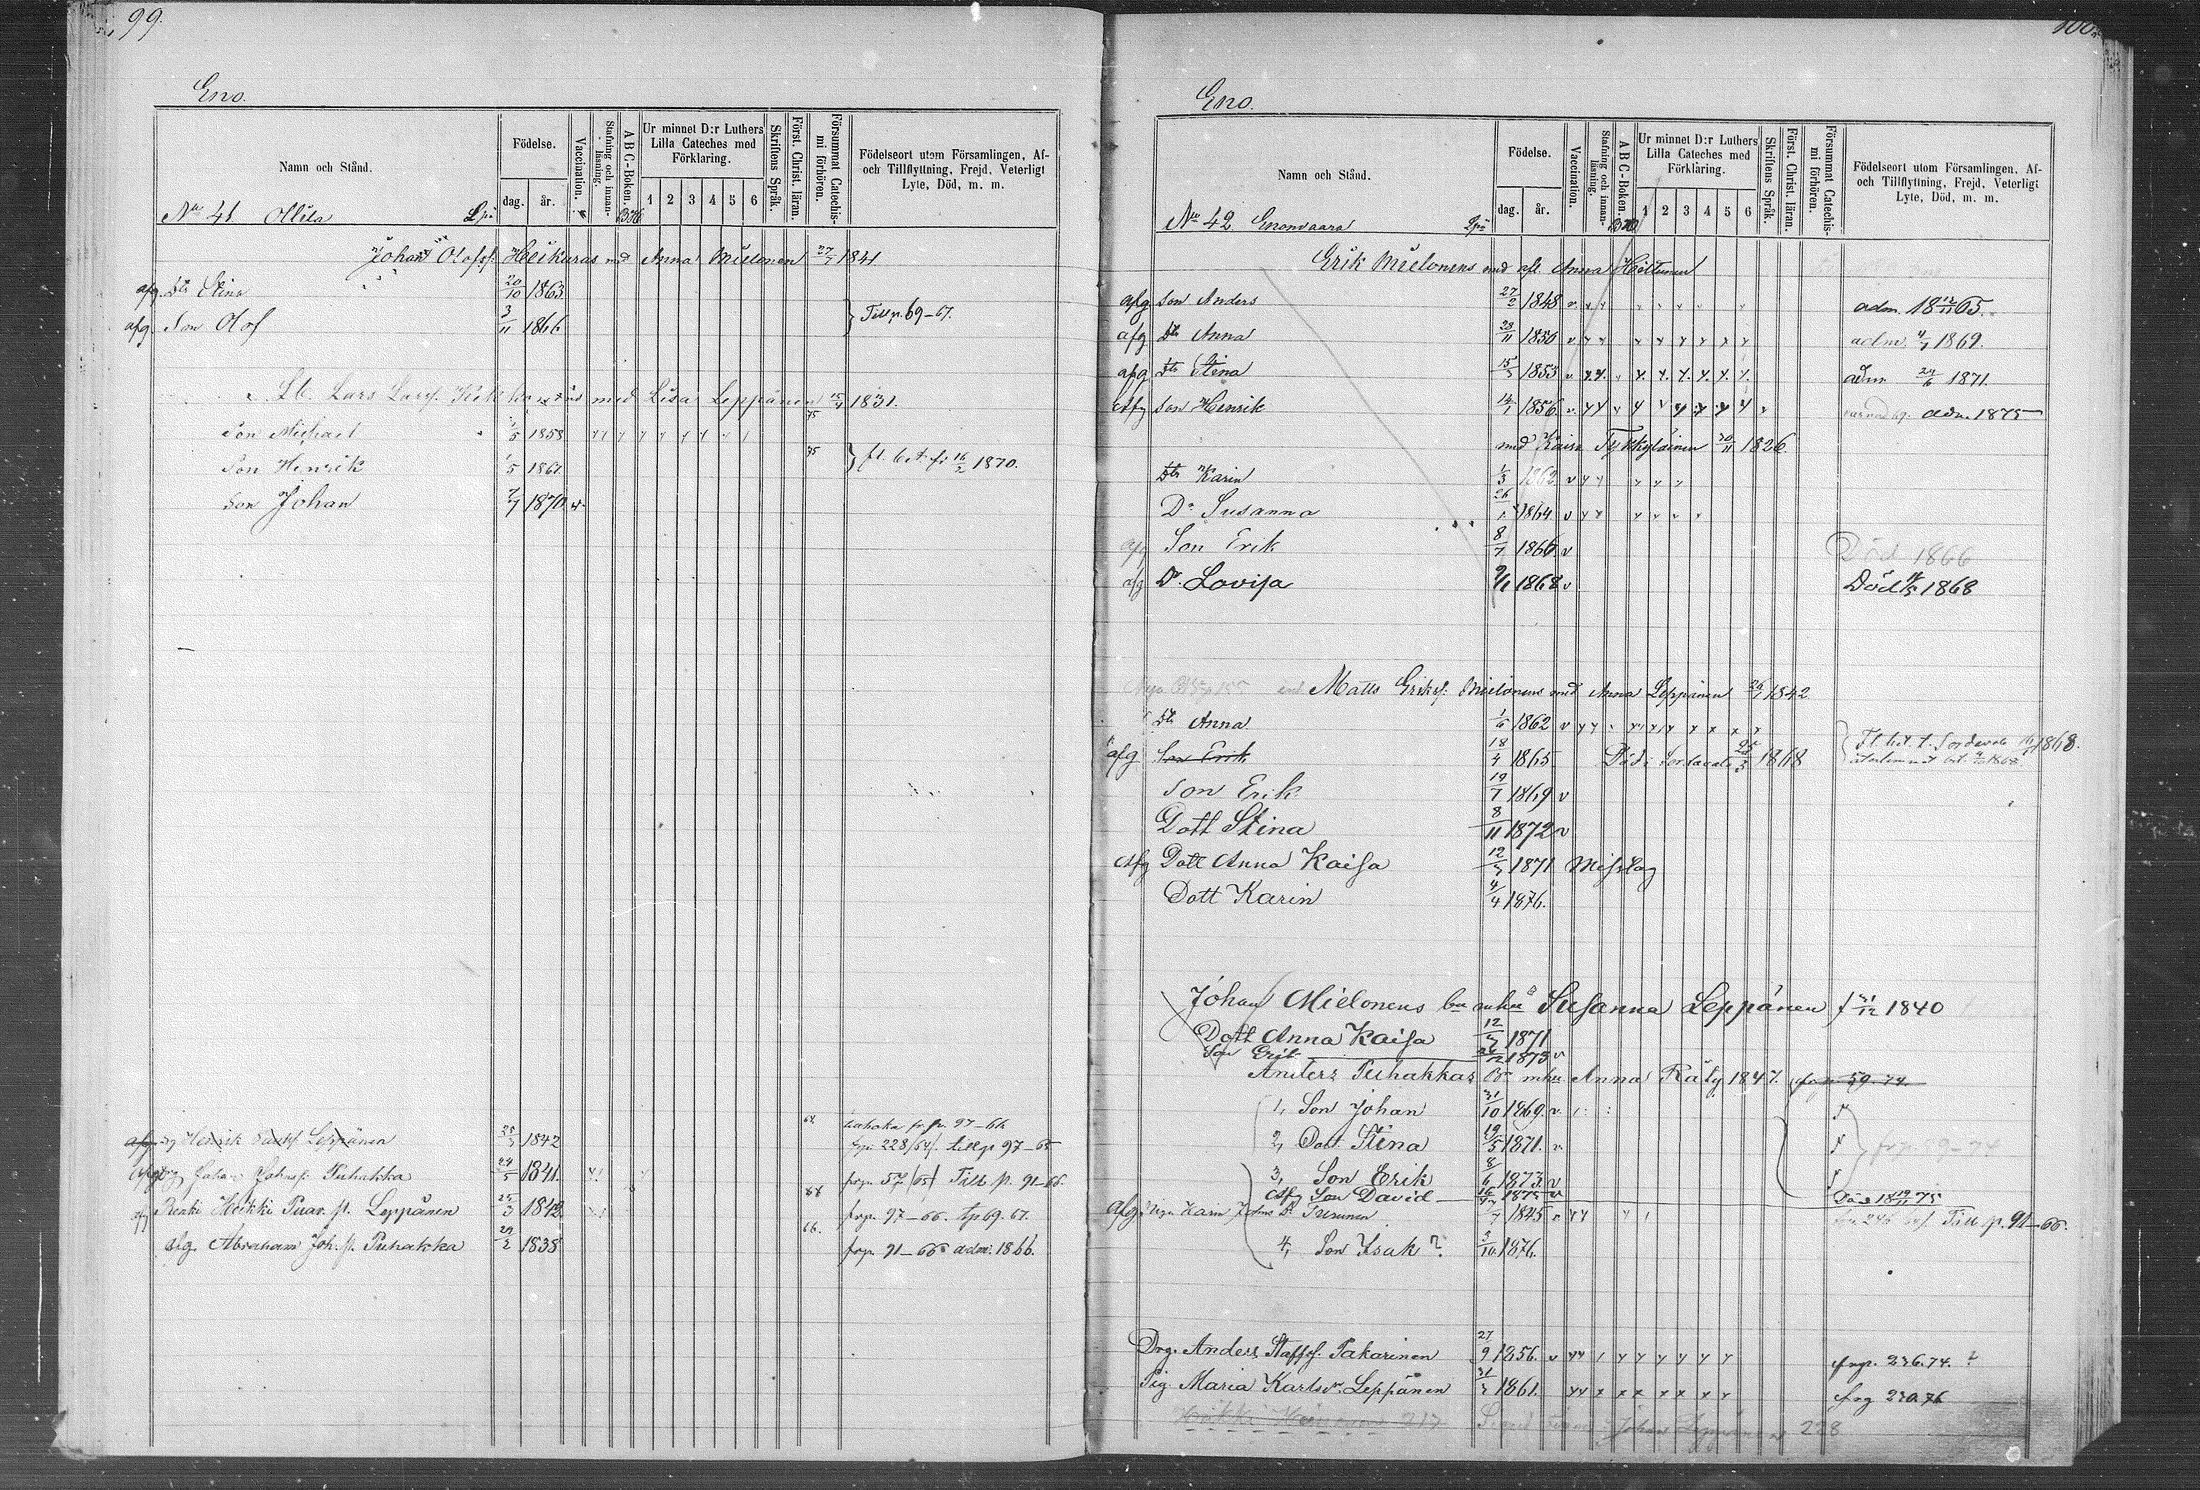 99.
Eno.
Namn och Stånd.
Födelse.
dag.
år.
Vaccination.
Stafning och innan-läsning.
A B C-Boken.
Ur minnet D:r Luthers Lilla Cateches med Förklaring.
1 2 3 4 5 6
Skriftens Språk.
Först. Christ. läran.
Försummat Catechis-mi förhören.
Födelseort utom Församlingen, Af- och Tillflyttning, Frejd, Veterligt Lyte, Död, m. m.
No 41 Ollila
Johan Olofs: Heikuras md Anna Mielonen 27/7 1841
afg. Dtr Stina 20/10 1863
afg. Son Olof 3/11 1866 Till p. 69-67.
Lars Lars. med Lisa Leppänen 1831.
Son Michael 1/5 1858
Son Henrik 1/5 1861 fl. bet. 16/2 1870.
Son Johan 7/7 1870
Henrik Leppänen 25/3 1842 frp. 228/64. till p 97-65
Johan Johns: Puhakka 24/5 1841 frp. 57/65. Till p. 91-66.
Renki Heikki Leppänen 25/3 1842 frp. 97-66. tp 69. 67.
afg. Abraham Joh. p. Puhakka 29/2 1838 frp. 91-66 adm. 1866.
100.
Eno.
Namn och Stånd.
Födelse.
dag.
år.
Vaccination.
Stafning och innan-läsning.
A B C-Boken.
Ur minnet D:r Luthers Lilla Cateches med Förklaring.
1 2 3 4 5 6
Skriftens Språk.
Först. Christ. läran.
Försummat Catechis-mi förhören.
Födelseort utom Församlingen, Af- och Tillflyttning, Frejd, Veterligt Lyte, Död, m. m.
No 42 Enonvaara
Erik Mielonens md afl. Anna Hiltunen
afg Son Anders 27/2 1848 adm. 18 12/11 65.
afg Dtr Anna 28/11 1850 adm. 4/7 1869.
afg Dtr Stina 15/5 1853 adm. 24/6 1871.
afg Son Henrik 14/1 1856 adm. 1875
md Kaisa Tykkyläinen 30/11 1826.
Dtr Karin 1/3 1862
Dr Susanna 26/1 1864
afg Son Erik 8/7 1866 Död 1866
afg Dr. Lovisa 9/1 1868 Död 1868
Matts Eriks: Mielonens md Anna Leppänen 26/1 1842
Dtr Anna 1/6 1862 Fl. bet. t. Sordavala 1868.
afg Son Erik 18/4 1865 Död i Sordavala 25/3 1868
Son Erik 19/7 1869
Dott Stina 8/11 1872
afg Dott Anna Kaisa 12/5 1871 Misslag
Dott Karin 4/4 1876.
Johan Mielonens Susanna Leppänen f 21/12 1840
Dott Anna Kaisa 12/5 1871
Son Erik 1873
Anders Puhakkas Anna Räty 1847. frp 59. 74.
1, Son Johan 31/10 1869.
2, Dott Stina 19/5 1871.
3, Son Erik 8/6 1873
afg Son David 1875 Död 18 19/11 75
afg Karin Turunen 1845 Till p. 91-66.
4, Son Isak 3/10 1876.
Drg. Anders Staffs. Pakarinen 27/9 1856. frp. 236. 74. ?
Pig Maria Karlsdr. Leppänen 31/3 1861. frg 230. 76
217
228